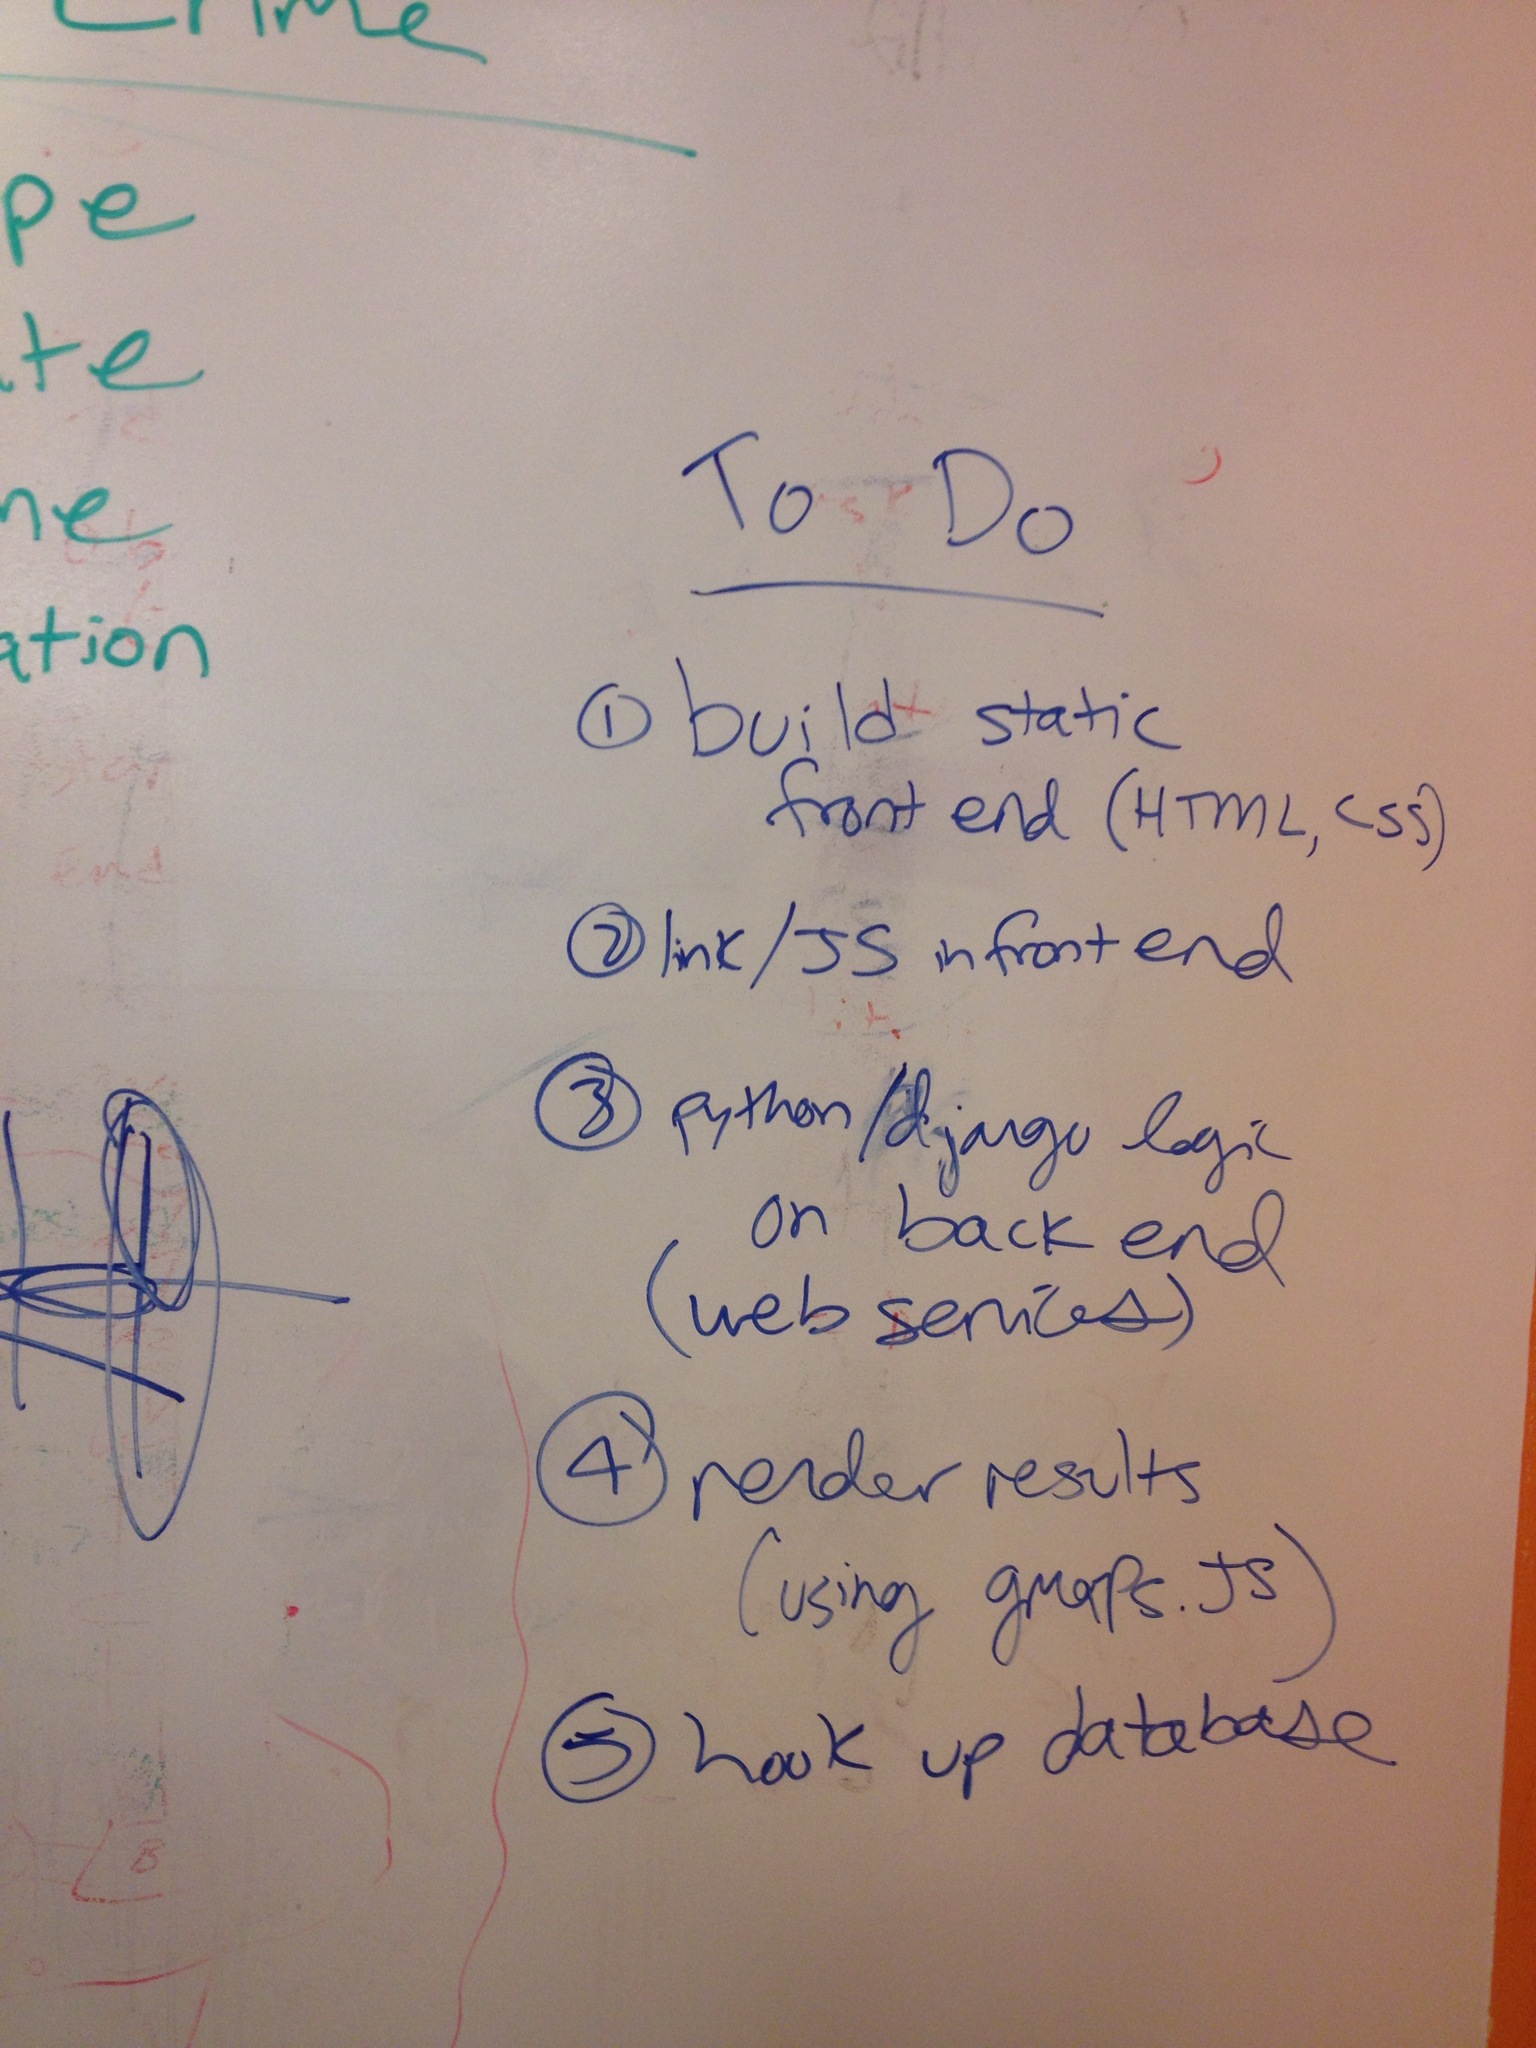 Crime
pe
te
ne
ation
To Do
① build static
front end (HTML, CSS)
② link/JS in front end
③ python/django logic
on back end
(web services)
④ render results
(using gmaps.JS)
⑤ hook up database
B